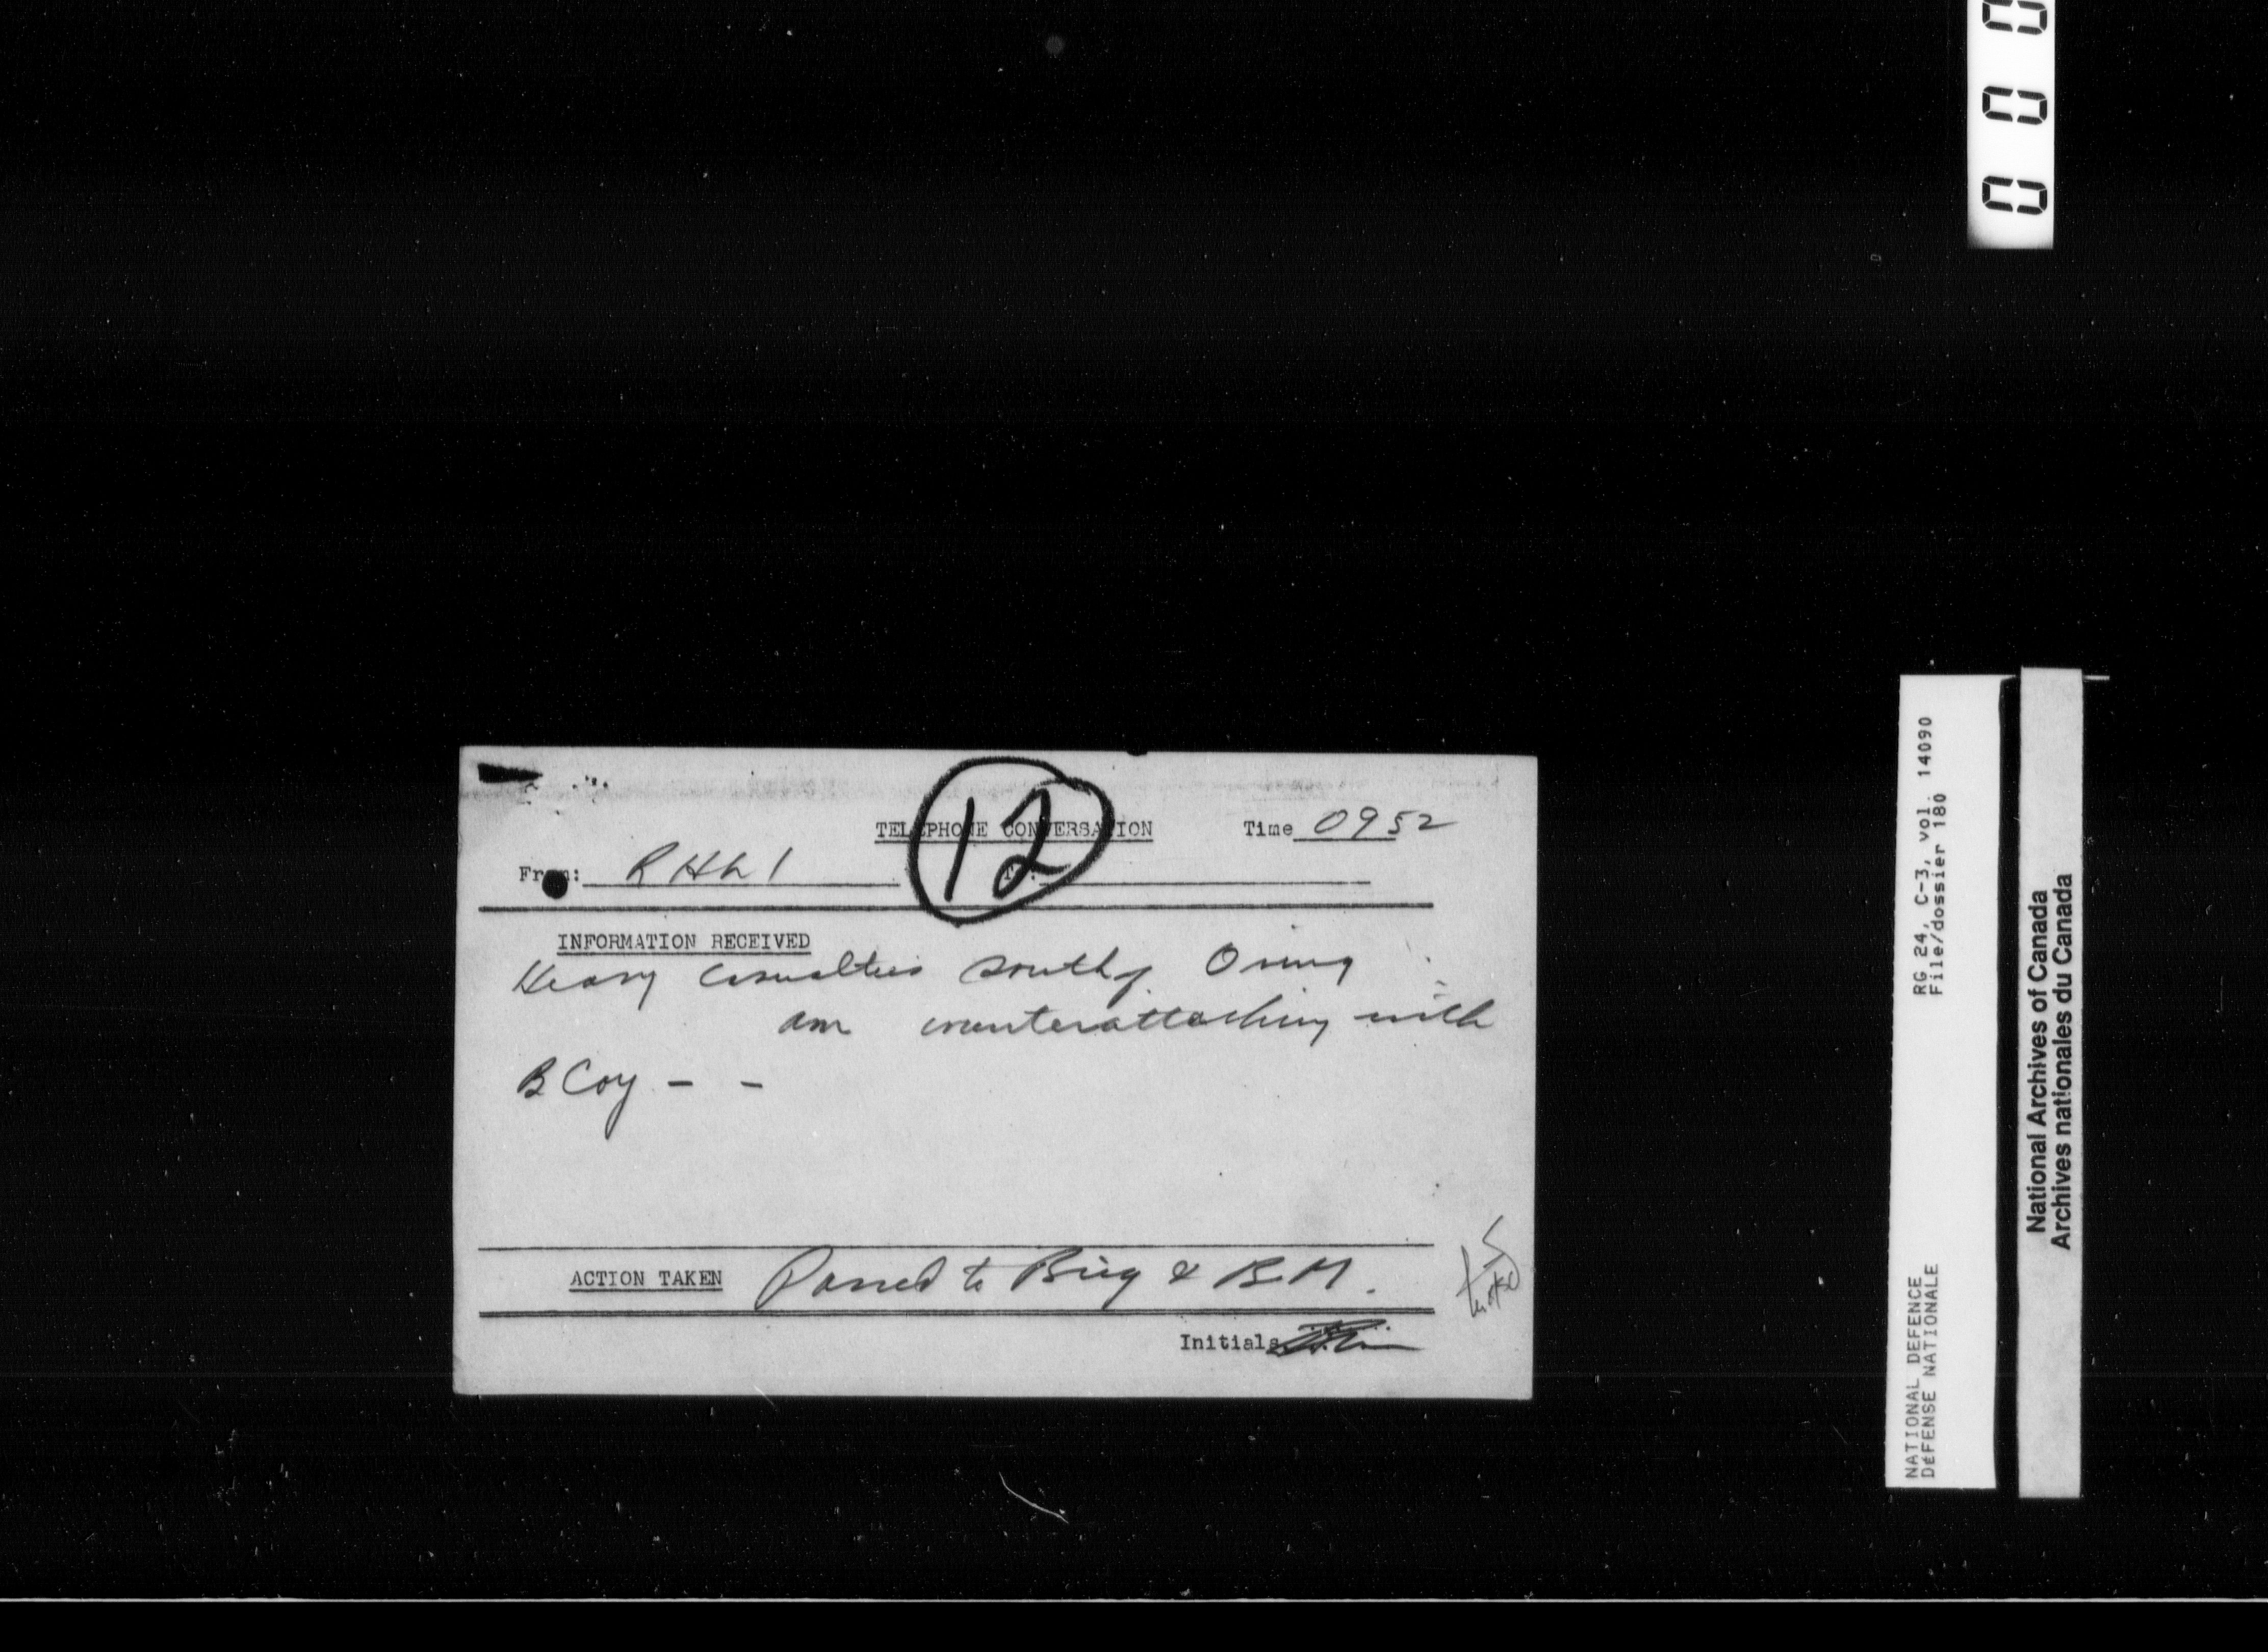 000
12
TELEPHONE CONVERSATION Time 0952
From: RHLI To:
INFORMATION RECEIVED
Heavy casualties south of
am counterattacking with
B Coy - -
ACTION TAKEN Passed to Brig & B.M.
Initials
RG 24, C-3, vol. 14090
File/dossier 180
NATIONAL DEFENCE
DÉFENSE NATIONALE
National Archives of Canada
Archives nationales du Canada